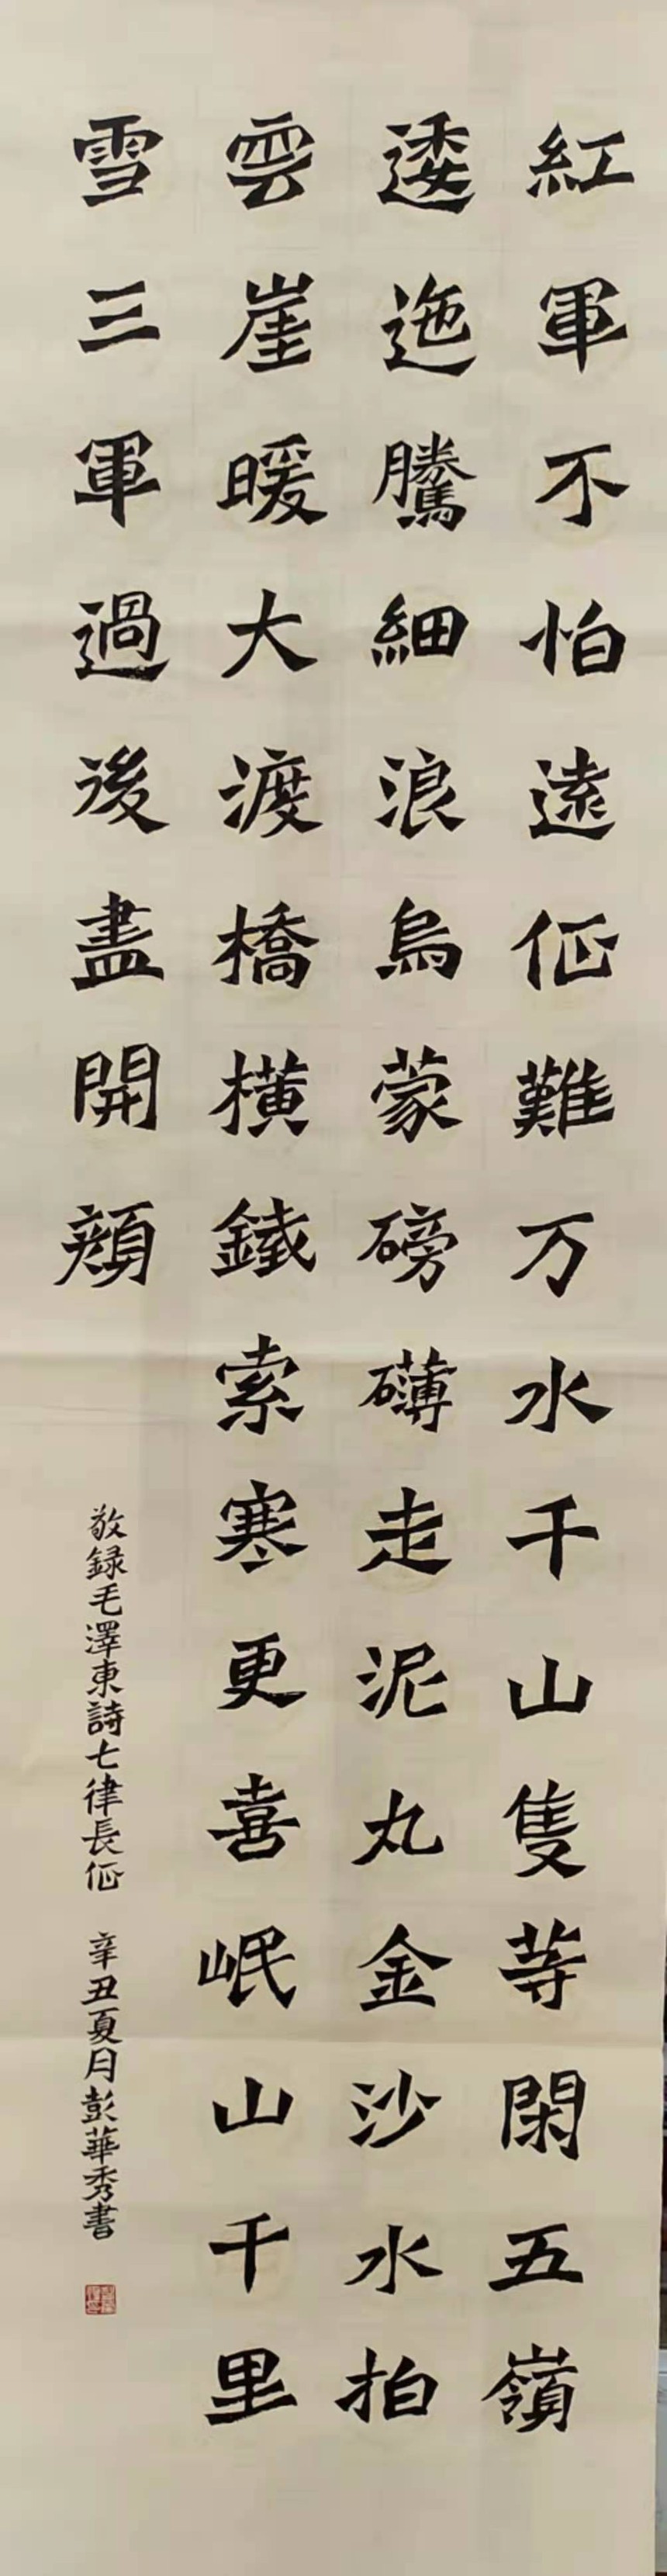 紅軍不怕遠征難万水千山隻等閑五嶺
逶迤騰細浪烏蒙磅礴走泥丸金沙水拍
雲崖暖大渡橋橫鐵索寒更喜岷山千里
雪三軍過後盡開顏
敬録毛澤東詩七律長征 辛丑夏月彭華秀書